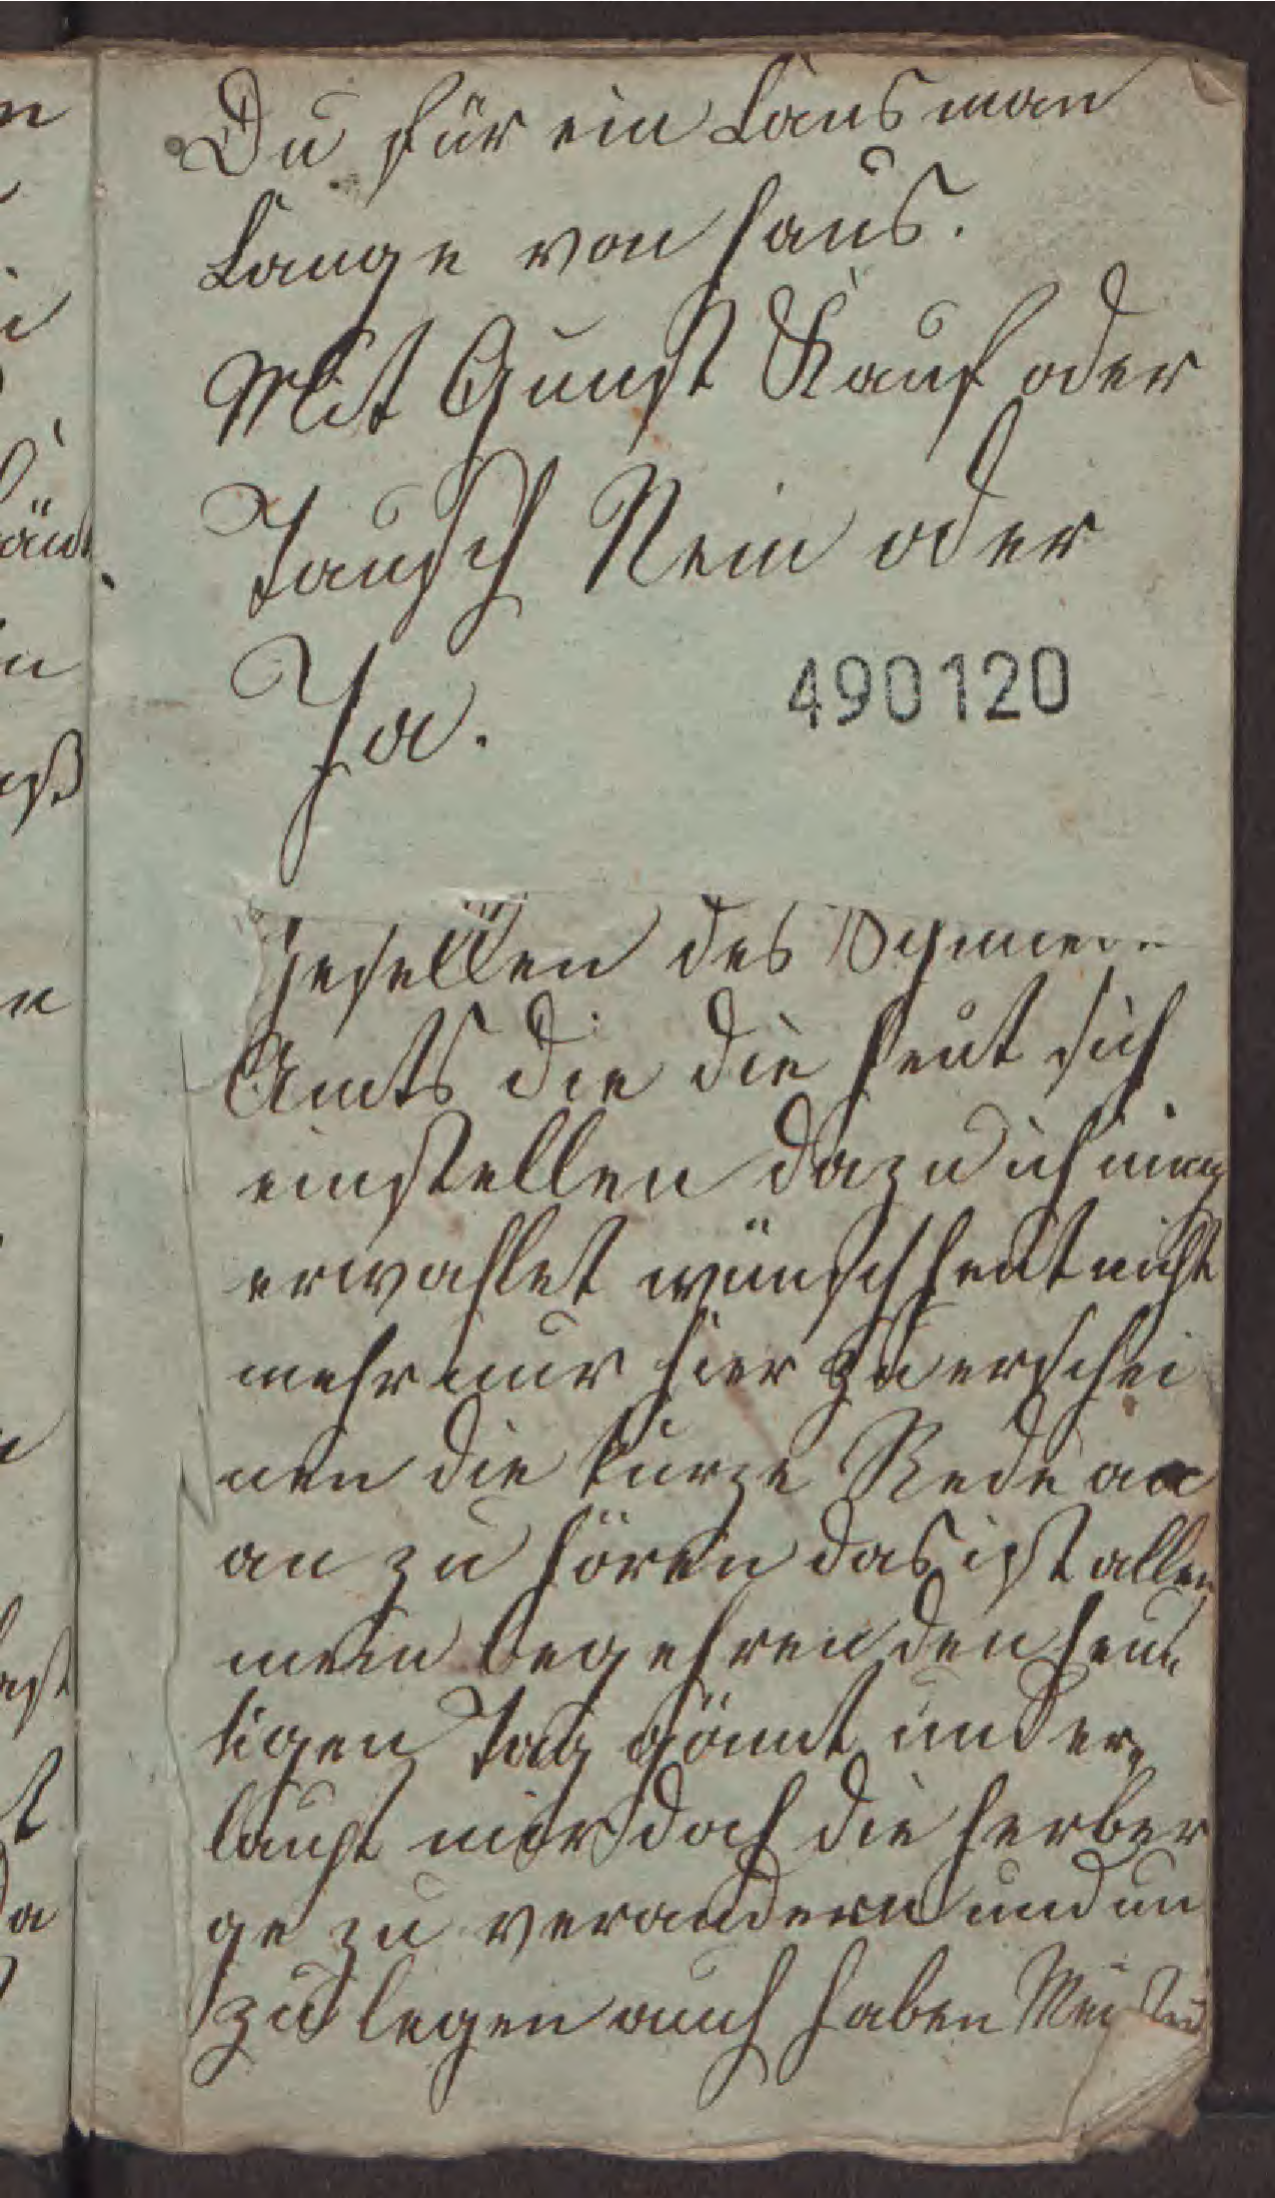 Du für ein Lansman
Lange von haus.
Mit Gunst Kauf oder
Tausch Nein oder
Ja.
490120
Gesellen des
Amts die die heut sich
einstellen dazu ich
erwahlet wünsch heut nicht
mehr nur hier zu erschei
nen die kurze Rede an
an zu hören das ist allen
mein begehren den heu
tigen Tag gönnt und er
laubt mir doch die herber
ge zu verandern und um
zu legen auch haben